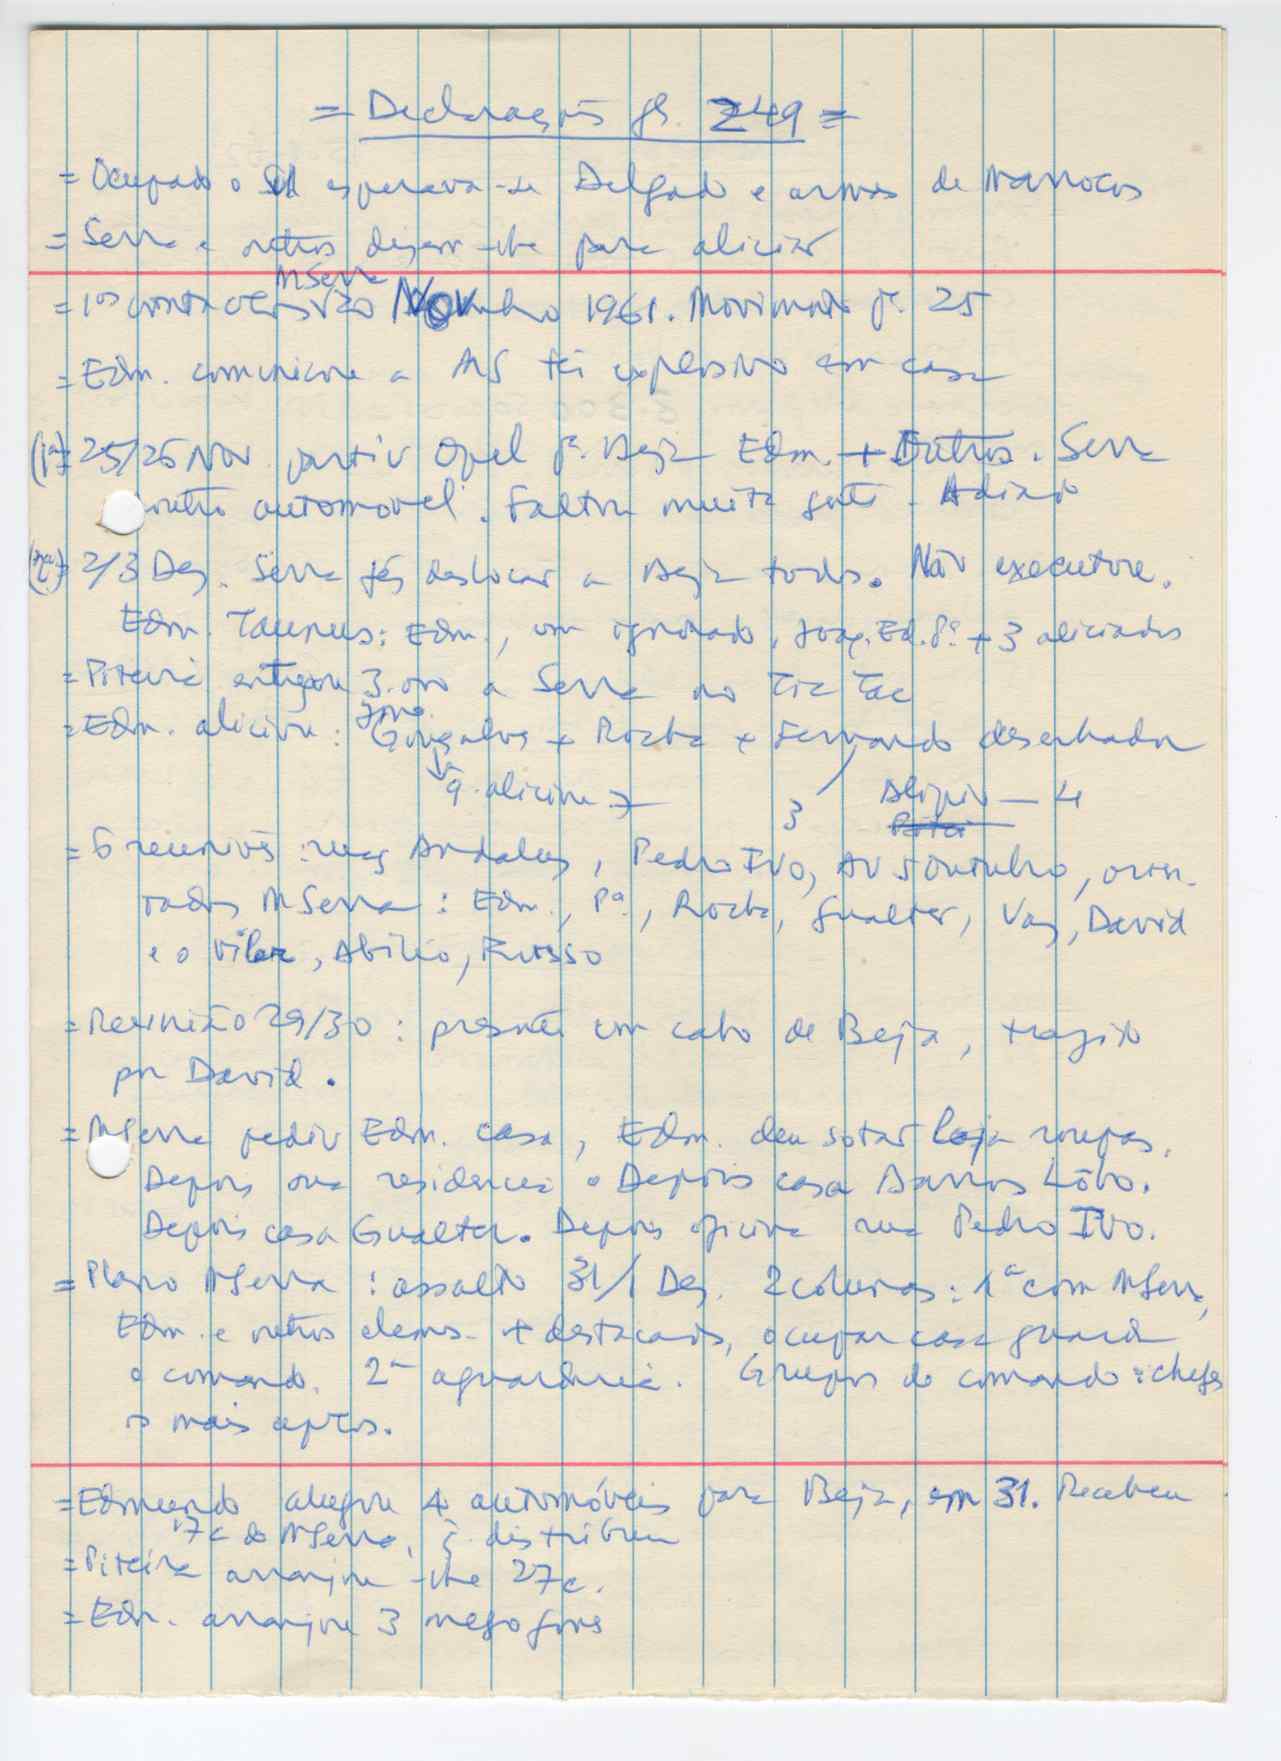 = Declarações fls. 249 =
= Ocupado o Sul esperava-se Delgado e armas de Marrocos
= Serra e outros dizem-lhe para aliciar
MSerra
= 1os contactos 20 Novembro 1961. Movimento pª 25
= Edm. comunicou a MS ter explosivo em casa
(1ª) = 25/26 Nov. partiu Opel pª Beja Edm. + Outros. Serra
outro automóvel. Faltou muita gente. Adiado
(2ª) = 2/3 Dez. Serra fez deslocar a Beja todos. Não executou.
Edm. Taunus: Edm., um ignorado, Joaq. Ed. Pª + 3 aliciados
= Piteira entregou 3.000 a Serra no Tic Tac
= Edm. aliciou: Gonçalves + Rocha + Fernando desenhador
q. aliciou
3
Alípio — 4
= 6 reuniões: ruas Andaluz, Pedro IVO, AV 5 Outubro, orien-
tadas MSerra: Edm., Pª, Rocha, Gualter, Vaz, David
e o Vilar, Abílio, Russo
= Reunião 29/30: presente um cabo de Beja, trazido
por David.
= MSerra pediu Edm. casa, Edm. deu sotão loja roupas.
Depois sua residencia. Depois casa Barros Lôbo.
Depois casa Gualter. Depois oficina rua Pedro IVO.
= Plano MSerra: assalto 31/1 Dez. 2 colunas: 1ª com MSerra,
Edm. e outros elems. + destacados, ocupar casa guarda
e comando. 2ª aguardaria. Grupos de comando: chefes
os mais aptos.
= Edmundo alugou 4 automóveis para Beja, em 31. Recebeu
17c do MSerra, q. distribuiu
= Piteira arranjou-lhe 27c.
= Edm. arranjou 3 megafones